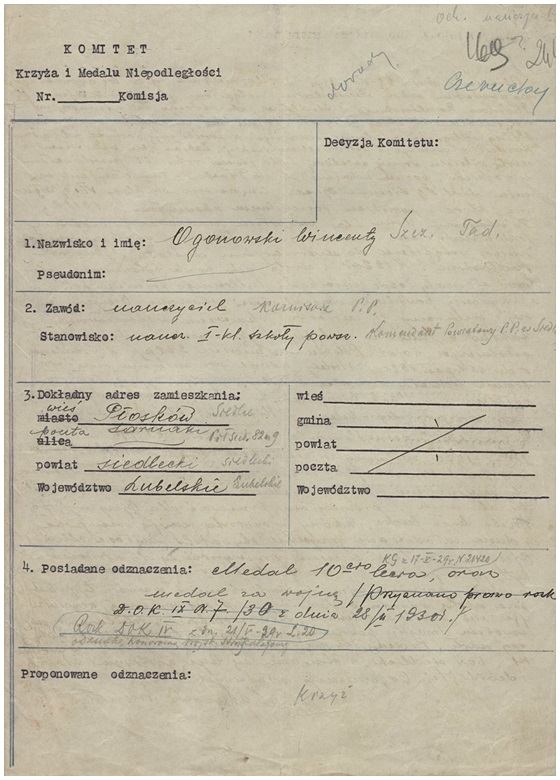 Och.
KOMITET
Krzyża i Medalu Niepodległości
Nr.______Komisja
Decyzja Komitetu:
1.Nazwisko i imię: Ogonowski Wincenty Szcz. Tad.
Pseudonim:
2. Zawód: nauczyciel Komisarz P.P.
Stanowisko: naucz. I-kl. szkoły powsz. Komendant Powiatowy P.P. w Siedl
3.Dokładny adres zamieszkania;
wieś
miasto Płosków Siedlce
poczta Sarnaki
ulica
powiat siedlecki siedlecki
Województwo Lubelskie Lubelskie
wieś
gmina
powiat
poczta
Województwo
KG z 17-X-29r. N 21420
4. Posiadane odznaczenia: Medal 10cio lecia, oraz
medal za wojnę /Przyznano prawo rozk
D.O.K. IX N. 7 /30 z dnia 28/II 1930r./
Rozk DOK IV z dn. 21/V-29r L. 20
Proponowane odznaczenia:
Krzyż